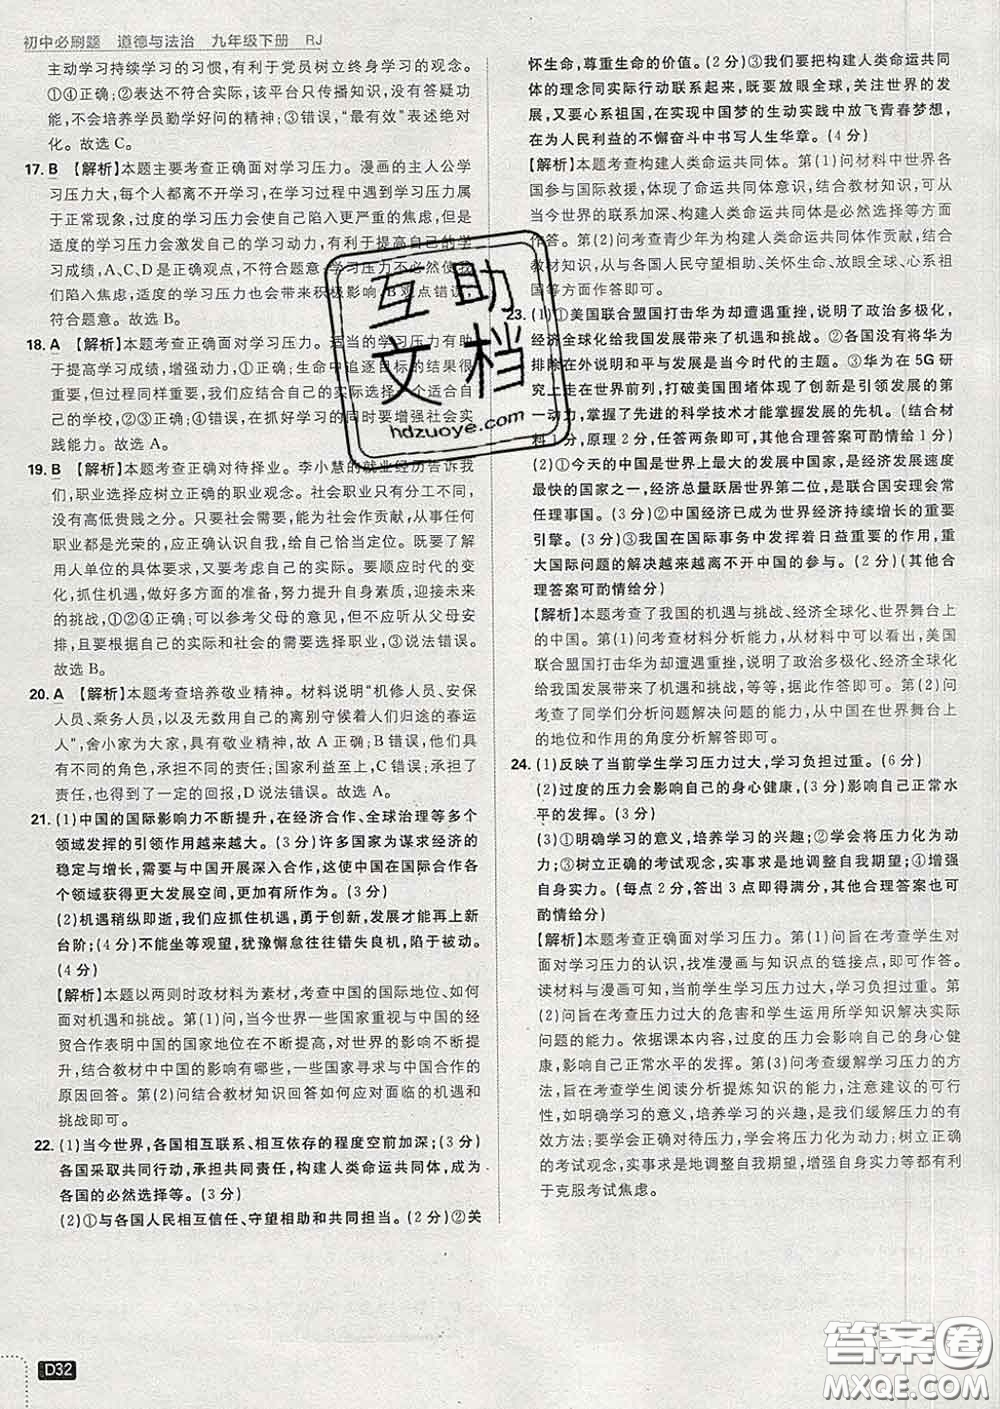 初中必刷题 道德与法治 九年级下册 RJ
主动学习持续学习的习惯,有利于党员树立终身学习的观念。
①④正确;②表达不符合实际,该平台只传播知识,没有答疑功
能,不会培养学员勤学好问的精神;③错误,“最有效”表述绝对
化。故选C。
17. B 【解析】本题主要考查正确面对学习压力。漫画的主人公学
习压力大,每个人都离不开学习,在学习过程中遇到学习压力
属于正常现象,过度的学习压力会使自己陷入更严重的焦虑,但是
适度的学习压力会激发自己的学习动力,有利于提高自己的学
习成绩,A、C、D是正确观点,不符合题意;学习压力不必然使我
们陷入焦虑,适度的学习压力也会带来积极影响,B观点错误,
符合题意。故选B。
18. A 【解析】本题考查正确面对学习压力。适当的学习压力有助
于提高学习成绩,增强动力,①正确;生命中追逐目标的结果很
重要,但过程同样重要,我们应结合自己的实际选择一个适合自
己的学校,②②③正确;④错误,在抓好学习的同时要增强社会实
践能力。故选A。
19. B 【解析】本题考查正确对待择业。李小慧的就业经历告诉我
们,职业选择应树立正确的职业观念。社会职业只有分工不同,
没有高低贵贱之分。只要社会需要,能为社会作贡献,从事任何
职业都是光荣的,应正确认识自我,给自己恰当定位。既要了解
用人单位的具体要求,又要结合自己的实际。要顺应时代的变
化,抓住机遇,做好多方面的准备,努力提升自身素质,迎接未来
的挑战,①②④正确;可以参考父母的意见,但不应听从父母安
排,且要根据自己的实际和社会的需要选择职业,③说法错误。
故选B。
20. A 【解析】本题考查培养敬业精神。材料说明“机修人员、安保
人员、乘务人员,以及无数用自己的离别守候着人们归途的春运
人”,舍小家为大家,具有敬业精神,故A正确;B错误,他们具有
不同的角色,承担不同的责任;国家利益至上,C错误;他们承担
了责任,也得到了一定的回报,D说法错误。故选A。
21. (1)中国的国际影响力不断提升,在经济合作、全球治理等多个
领域发挥的引领作用越来越大。(3分)许多国家为谋求经济的
稳定与增长,需要与中国开展深入合作,这使中国在国际合作各
个领域获得更大发展空间,更加有所作为。(3分)
(2)机遇稍纵即逝,我们应抓住机遇,勇于创新,发展才能再上新
台阶;(4分)不能坐等观望,犹豫懈怠往往错失良机,陷于被动。
(4分)
【解析】本题以两则时政材料为素材,考查中国的国际地位、如何
面对机遇和挑战。第(1)问,当今世界一些国家重视与中国的经
贸合作表明中国的国家地位在不断提高,对世界的影响在不断
提升,结合教材中中国的影响有哪些,一些国家与中国合作的
原因回答。第(2)问结合教材知识回答如何应对面临的机遇和
挑战即可。
22. (1)当今世界,各国相互联系、相互依存的程度空前加深;(3分)
各国采取共同行动,承担共同责任,构建人类命运共同体,成为
各国的必然选择等。(3分)
(2)①与各国人民相互信任、守望相助和共同担当。(2分)②关
怀生命,尊重生命的价值。(2分)③我们要把构建人类命运共同
体的理念同实际行动联系起来,既要放眼全球、关注人类发展,
又要心系祖国,在实现中国梦的生动实践中放飞青春梦想,
在为人民利益的不懈奋斗中书写人生华章。(4分)
【解析】本题考查构建人类命运共同体。第(1)问材料中世界各
国参与国际救援,体现了命运共同体意识,结合教材知识,可从
当今世界的联系加深、构建人类命运共同体是必然选择等方面
作答。第(2)问考查青少年为构建人类命运共同体作贡献,结合
教材知识,从与各国人民守望相助、关怀生命、放眼全球、心系祖
国等方面作答即可。
23. (1)①美国联合盟国打击华为却遭遇重挫,说明了政治多极化,
经济全球化给我国发展带来了机遇和挑战。②各国没有将华为
排除在外说明和平与发展是当今时代的主题。③华为在5G研
究上走在世界前列,打破美国围堵体现了创新是引领发展的第
一动力,掌握了先进的科学技术才能掌握发展的先机。(结合材
料1分,原理2分,任答两条即可,其他合理答案可酌情给1分)
(2)①今天的中国是世界上最大的发展中国家,是经济发展速度
最快的国家之一,经济总量跃居世界第二位,是联合国安理会常
任理事国。(3分)②中国经济已成为世界经济持续增长的重要
引擎。(3分)③我国在国际事务中发挥着日益重要的作用,重
大国际问题的解决越来越离不开中国的参与。(2分)(其他合
理答案可酌情给分)
【解析】本题考查了我国的机遇与挑战、经济全球化、世界舞台上
的中国。第(1)问考查材料分析能力,从材料中可以看出,美国
联合盟国打击华为却遭遇重挫,说明了政治多极化、经济全球化
给我国发展带来了机遇和挑战,等等,据此作答即可。第(2)问
考查了同学们分析问题解决问题的能力,从中国在世界舞台上
的地位和作用的角度分析解答即可。
24. (1)反映了当前学生学习压力过大,学习负担过重。(6分)
(2)过度的压力会影响自己的身心健康,(3分)影响自己正常水
平的发挥。(3分)
(3)①明确学习的意义,培养学习的兴趣;②学会将压力化为动
力;③树立正确的考试观念,实事求是地调整自我期望;④增强
自身实力。(每点2分,答出3点即得满分,其他合理答案也可
酌情给分)
【解析】本题考查正确面对学习压力。第(1)问旨在考查学生对
面对学习压力的认识,找准漫画与知识点的链接点,即可作答。
读材料与漫画可知,当前学生学习压力过大,学习负担过重。第(2)
问旨在考查压力过大的危害和学生运用所学知识解决实际问
题的能力。依据课本内容,过度的压力会影响自己的身心健
康,影响自己正常水平的发挥。第(3)问考查缓解学习压力的方
法,旨在考查学生阅读分析提炼知识的能力,注意建议的可行
性。明确学习的意义,培养学习的兴趣,是我们缓解压力的有
效方法;要学会正确对待压力,学会将压力化为动力;树立正确
的考试观念,实事求是地调整自我期望,增强自身实力等都有利
于克服考试焦虑。
互助
文档
hdzuoye.com
D32
答案圈
MXQE.COM